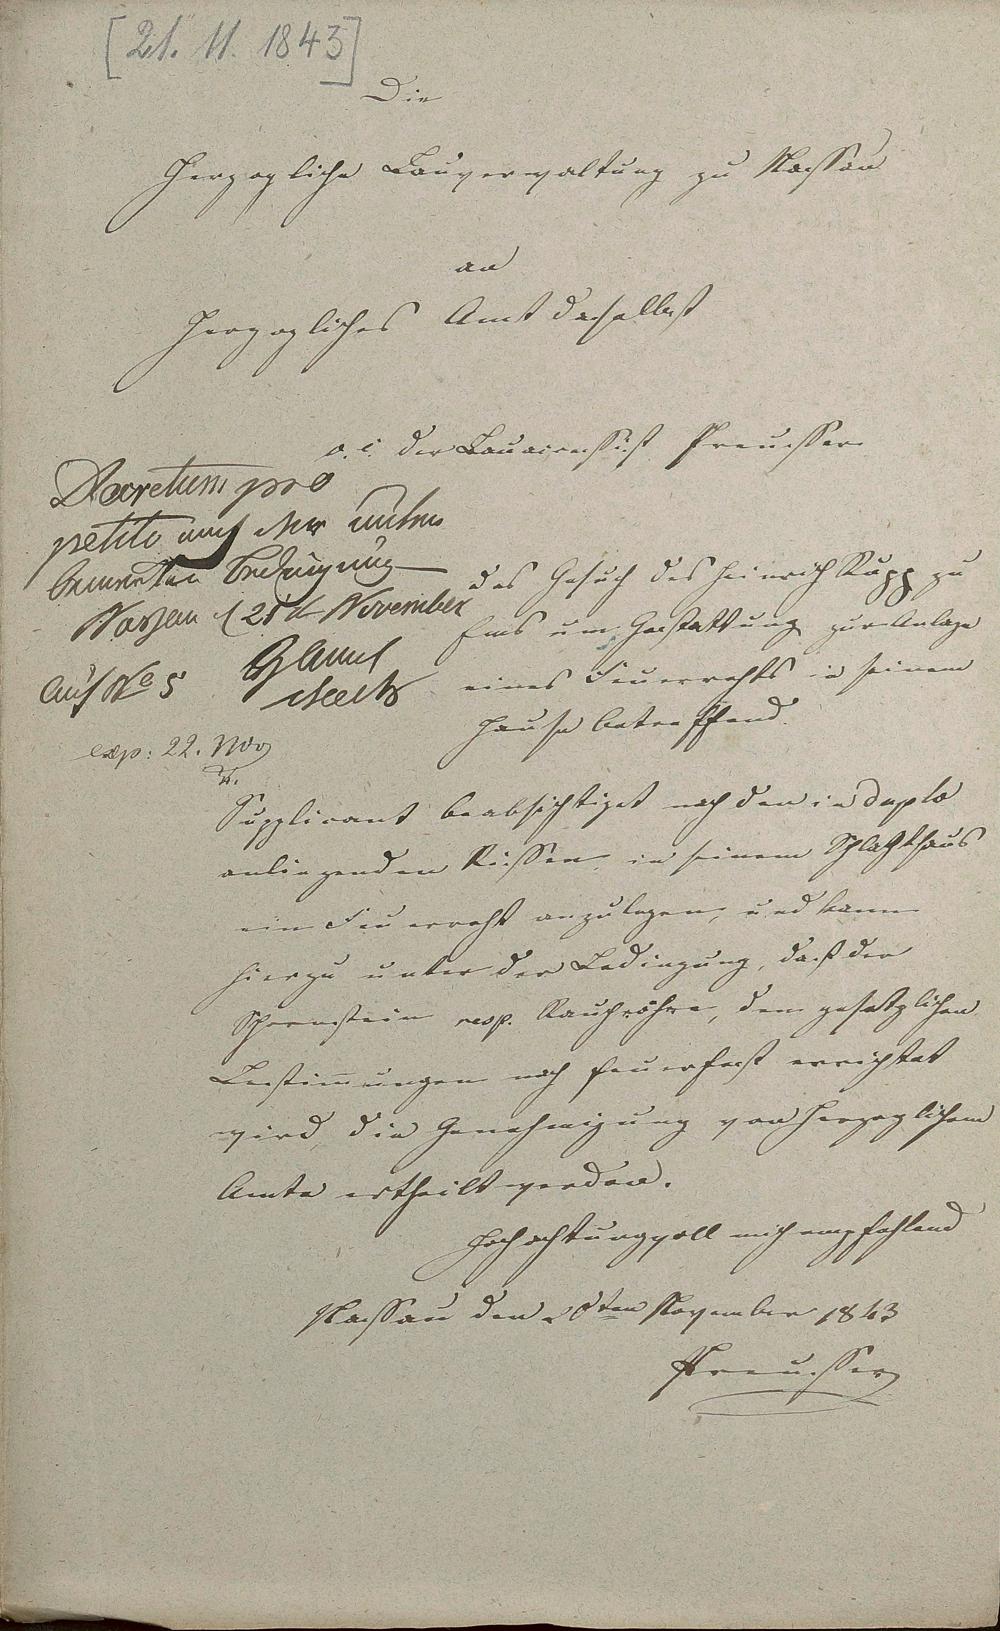 [21. 11. 1843]
Die
Herzogliche Bauverwaltung zu Nassau
an
Herzogliches Amt daselbst
o. i. der Bauaccessist Preusser
Decretum pro
petito mit der unten
bemerkten Bedingung
Nassau d 21t November
Auf No 5
exp: 22. Nov
das Gesuch des Heinrich Rupp zu
Ems um Gestattung zur Anlage
eines Feuerrechts in seinem
Hause betreffend.
Supplicant beabsichtiget nach den in duplo
anliegenden Rissen, in seinem Schlachthaus
ein Feuerrecht anzulegen, und kann
hierzu unter der Bedingung, daß der
Schornstein resp. Rauchröhre, den gesetzlichen
Bestimmungen nach feuerfest errichtet
wird, die Genehmigung von Herzoglichem
Amte ertheilt werden.
Hochachtungsvoll mich empfehlend
Nassau den 20ten November 1843
Preusser